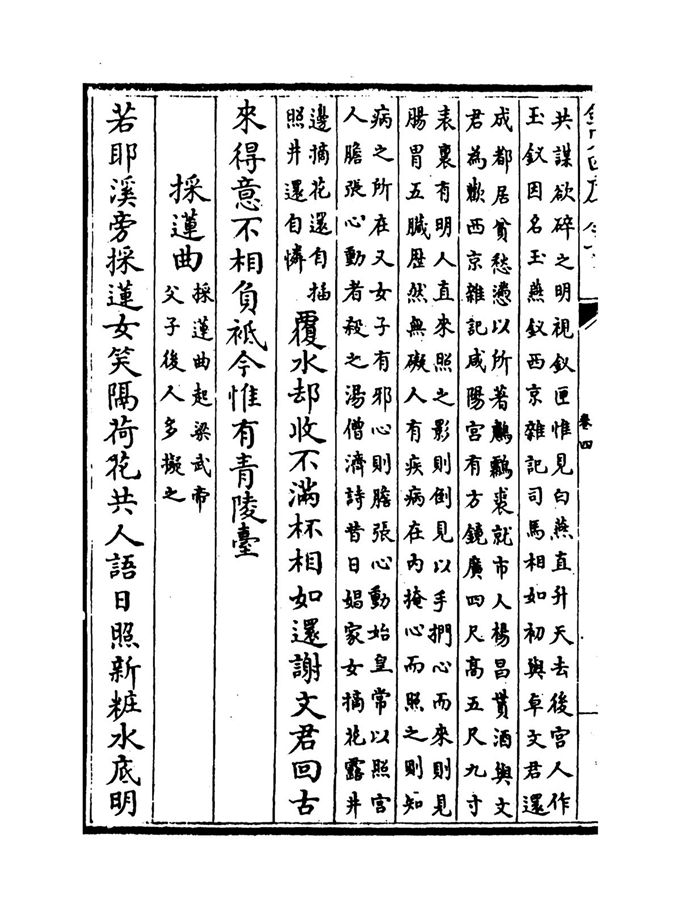 共謀欲碎之明視釵匣惟見白燕直升天去後宮人作
玉釵因名玉燕釵西京雜記司馬相如初與卓文君還
成都居貧愁懣以所著鷫鸘裘就市人楊昌貰酒與文
君為歡西京雜記咸陽宮有方鏡廣四尺高五尺九寸
表裏有明人直來照之影則倒見以手捫心而來則見
腸胃五臟歴然無礙人有疾病在内掩心而照之則知
病之所在又女子有邪心則膽張心動始皇常以照宮
人膽張心動者殺之湯僧濟詩昔日娼家女摘花露井
邊摘花還自插
照井還自憐
覆水却收不滿杯相如還謝文君回古
來得意不相負祗今惟有青陵臺
採蓮曲
採蓮曲起梁武帝
父子後人多擬之
若耶溪旁採蓮女笑隔荷花共人語日照新粧水底明
卷四